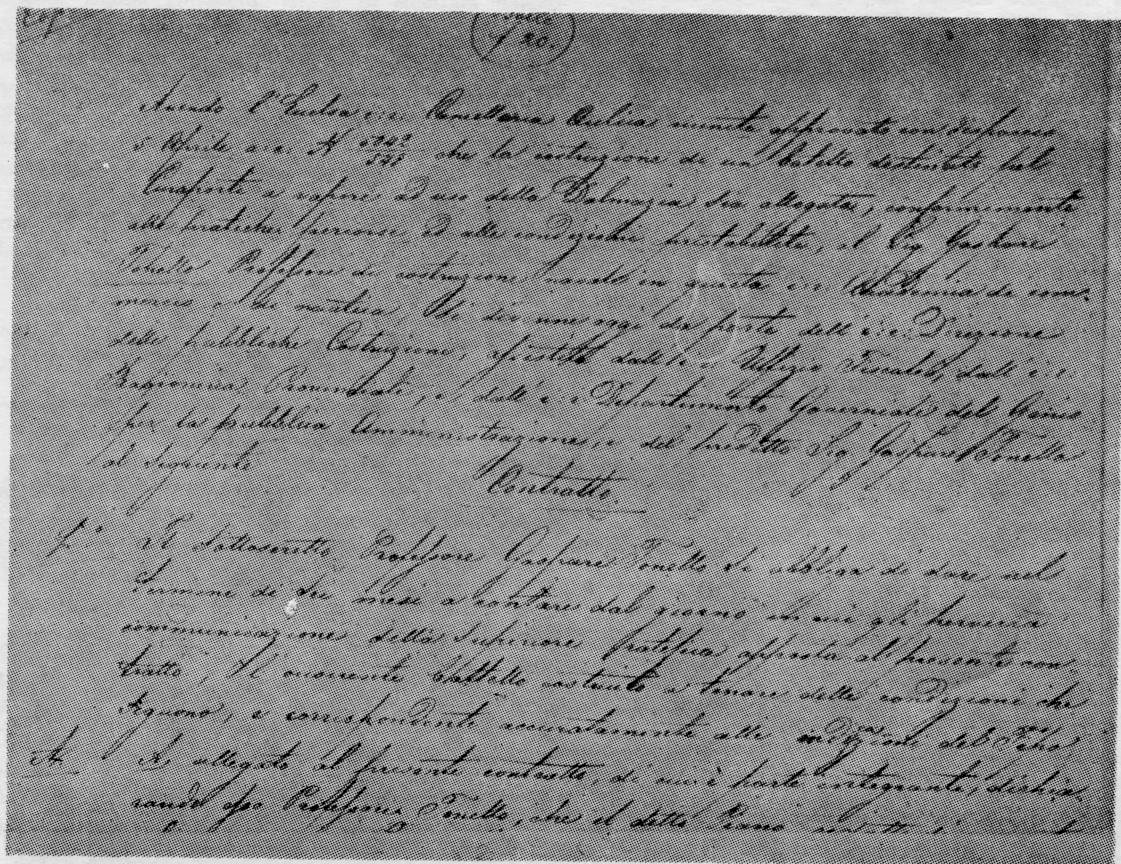 20.
Avendo l'Eccelsa i: r: Cancelleria Aulica riunita approvato con dispaccio
5 Aprile a: c: N che la costruzione di un battello destinato pel
Curaporti a vapore ad uso della Dalmazia sia allogata, conformemente
alle pratiche percorse, ed alle condizioni prestabilite, al Sig Gaspare
Tonello Professore di costruzione navale in questa i: r: Accademia di com:
mercio e di nautica, Si divenne oggi da parte dell' i: r: Direzione
delle pubbliche Costruzioni, assistita dall' i: r: Uffizio Fiscale, dall' i: r:
Ragioneria Provinciale, e dall' i: r: Dipartimento Governiale del Genio
per la pubblica Amministrazione, e del predetto Sig Gaspare Tonello
al seguente Contratto.
1° Il sottoscritto Professore Gaspare Tonello si obbliga di dare nel
termine di tre mesi a contare dal giorno in cui gli perverrà
communicazione della Superiore ratifica apposta al presente con-
tratto, il occorrente battello costruito a tenore delle condizioni che
seguono, e corrispondente accuratamente alle indicazioni del
A. A. allegato al presente contratto, di cui è parte integrante, dichia-
rando esso Professore Tonello, che il detto Piano